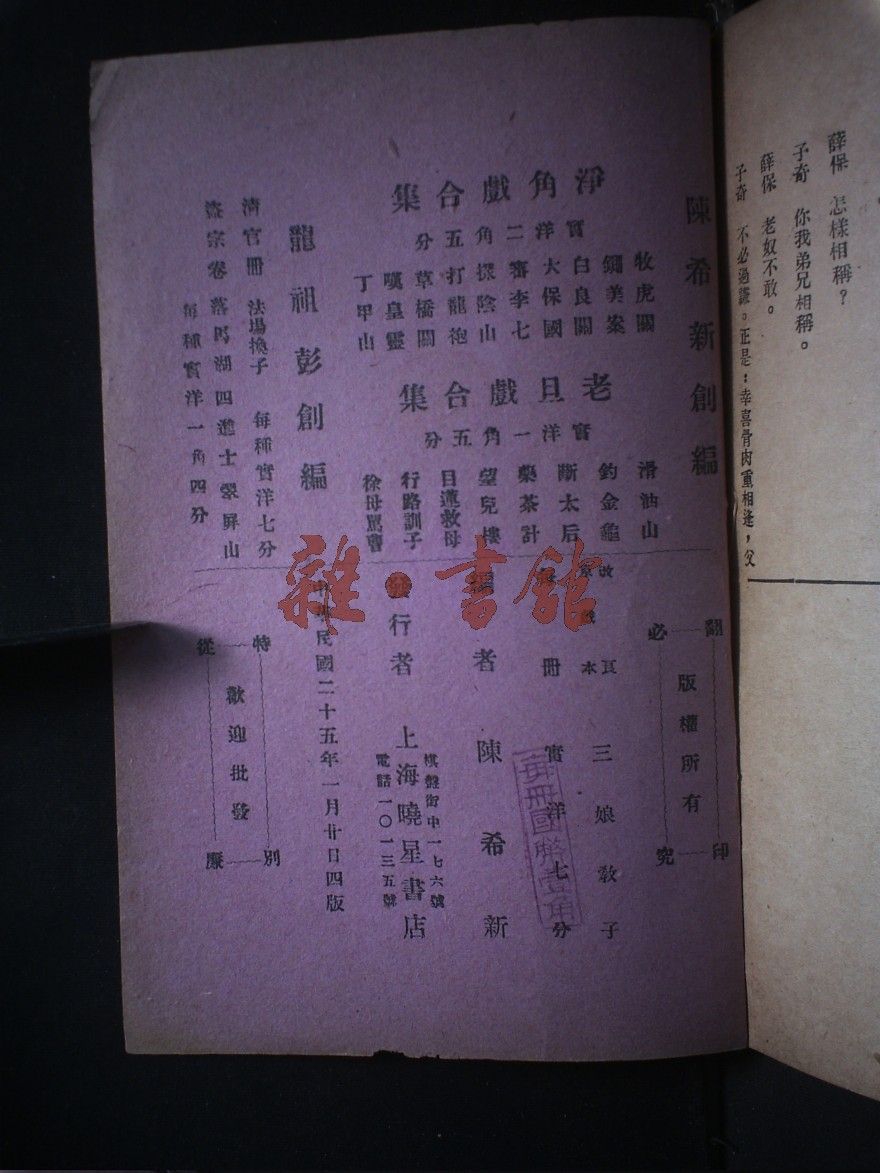 薛保　怎樣相稱？
子奇　你我弟兄相稱。
薛保　老奴不敢。
子奇　不必過謙。正是：幸喜骨肉重相逢，父
陳希新創編
淨角戲合集
實洋二角五分
牧虎關
鍘美案
白良關
大保國
審李七
探陰山
打龍袍
草橋關
嘆皇靈
丁甲山
老旦戲合集
實洋一角五分
滑油山
釣金龜
斷太后
藥茶計
望兒樓
目蓮救母
行路訓子
徐母罵曹
龍祖彭創編
清官冊　法場換子　每種實洋七分
盜宗卷　落馬湖　四進士　翠屏山
每種實洋一角四分
翻印必究
版權所有
改良
京戲本
三娘教子
每冊　實洋七分
每冊國幣壹角
編者　陳希新
發行者　上海曉星書店
棋盤街中一七六號
電話一〇一三五號
中華民國二十五年一月廿日四版
特別從廉
歡迎批發
雜·書館